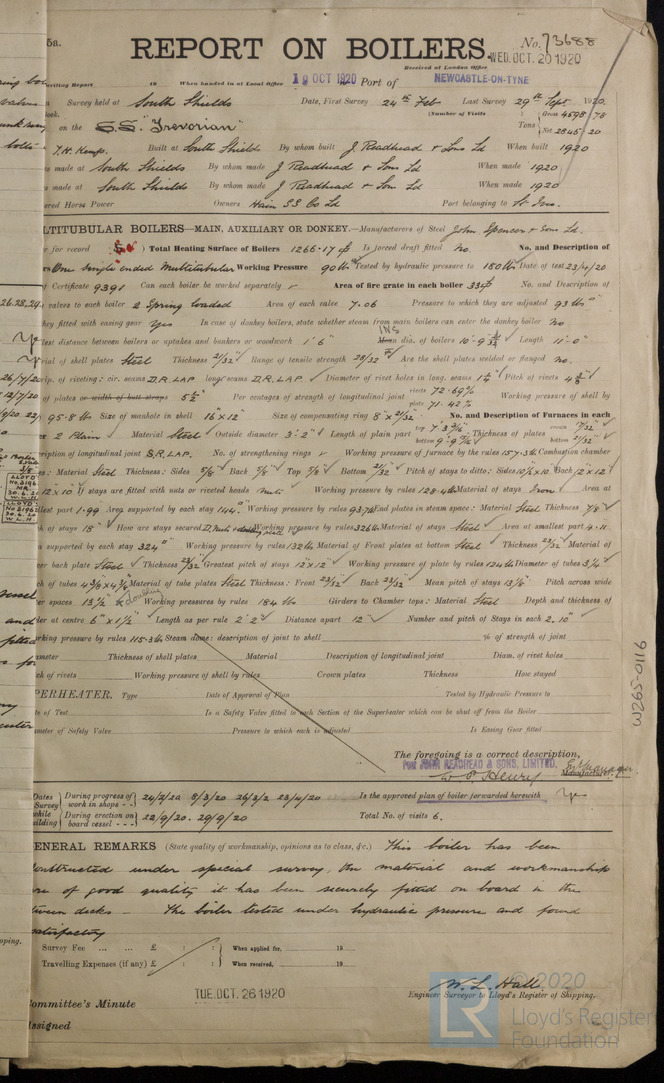 5a.
REPORT ON BOILERS.
No. 73688
Received at London Office
WED. OCT. 20 1920
Writing Report 19 When handed in at Local Office 19 OCT 1920 Port of NEWCASTLE-ON-TYNE
Survey held at South Shields Date, First Survey 24th Feb Last Survey 29th Sept 1920
(Number of Visits
on the S.S. "Trevorian" Tons Gross 4598.78 Net 2845.20
T.H. Kemp. Built at South Shields By whom built J. Readhead & Sons Ld When built 1920
made at South Shields By whom made J. Readhead & Sons Ld When made 1920
made at South Shields By whom made J. Readhead & Son Ld When made 1920
Horse Power Owners Hain SS Co Ld Port belonging to St Ives.
MULTITUBULAR BOILERS—MAIN, AUXILIARY OR DONKEY.—Manufacturers of Steel John Spencer & Sons Ld.
for record ) Total Heating Surface of Boilers 1266.17 Is forced draft fitted No. No. and Description of
One single ended Multitubular Working Pressure 90 lbs Tested by hydraulic pressure to 180 lbs Date of test 23/4/20
Certificate 9391 Can each boiler be worked separately Area of fire grate in each boiler 33 No. and Description of
valves to each boiler 2 Spring loaded Area of each valve 7.06 Pressure to which they are adjusted 93 lbs
they fitted with easing gear Yes In case of donkey boilers, state whether steam from main boilers can enter the donkey boiler No
distance between boilers or uptakes and bunkers or woodwork 1'6" INS dia. of boilers 10'-9 Length 11'-0"
of shell plates Steel Thickness 21/32" Range of tensile strength 28/32 Are the shell plates welded or flanged no.
of riveting: cir. seams D.R.LAP long. seams D.R.LAP. Diameter of rivet holes in long. seams 1 Pitch of rivets 4
of plates or width of butt straps 5½" Per centages of strength of longitudinal joint rivets 72.69% plate 71.42% Working pressure of shell by
95.8 lbs Size of manhole in shell 16"x12" Size of compensating ring 8"x21/32" No. and Description of Furnaces in each
2 Plain Material Steel Outside diameter 3'.2" Length of plain part top bottom Thickness of plates crown bottom
of longitudinal joint S.R.LAP. No. of strengthening rings Working pressure of furnace by the rules 157.3 lbs Combustion chamber
: Material Steel Thickness: Sides Back Top Bottom 21/32" Pitch of stays to ditto: Sides Back 12"x12"
12x10 If stays are fitted with nuts or riveted heads nuts Working pressure by rules 128.4 lbs Material of stays Iron Area at
part 1.99 Area supported by each stay 144" Working pressure by rules 93.7 lbs End plates in steam space: Material Steel Thickness 7/8
of stays 18" How are stays secured Working pressure by rules 326 lbs Material of stays Steel Area at smallest part 4.11
supported by each stay 324" Working pressure by rules 132 lbs Material of Front plates at bottom Steel Thickness 23/32" Material of
back plate Steel Thickness 23/32" Greatest pitch of stays 12"x12" Working pressure of plate by rules 134 lbs Diameter of tubes 3¼"
of tubes Material of tube plates Steel Thickness: Front 23/32" Back 23/32 Mean pitch of stays Pitch across wide
spaces 13½" & doubling Working pressures by rules 184 lbs Girders to Chamber tops: Material Steel Depth and thickness of
at centre 6"x1½" Length as per rule 2'.2" Distance apart 12" Number and pitch of Stays in each 2, 10"
Working pressure by rules 115.3 lbs Steam dome: description of joint to shell % of strength of joint
Thickness of shell plates Material Description of longitudinal joint Diam. of rivet holes
of rivets Working pressure of shell by rules Crown plates Thickness How stayed
SUPERHEATER. Type Date of Approval of Plan Tested by Hydraulic Pressure to
of Test Is a Safety Valve fitted to each Section of the Superheater which can be shut off from the Boiler
of Safety Valve Pressure to which each is adjusted Is Easing Gear fitted
The foregoing is a correct description,
FOR JOHN READHEAD & SONS, LIMITED.
W. S. Henry Eng Manager. Manufacturer.
Dates of Survey while building
During progress of work in shops - - 24/2/20 8/3/20 26/3/20 23/4/20 Is the approved plan of boiler forwarded herewith Yes
During erection on board vessel - - - 22/9/20. 29/9/20 Total No. of visits 6.
GENERAL REMARKS (State quality of workmanship, opinions as to class, &c.) This boiler has been
constructed under special survey, the material and workmanship
are of good quality it has been securely fitted on board in the
tween decks — The boiler tested under hydraulic pressure and found
satisfactory
Survey Fee ... ... £ : : When applied for, 19
Travelling Expenses (if any) £ : : When received, 19
W. L. Hall
Engineer Surveyor to Lloyd's Register of Shipping.
TUE. OCT. 26 1920
Committee's Minute
Assigned
W265-0116
© 2020
LR
Lloyd's Register
Foundation